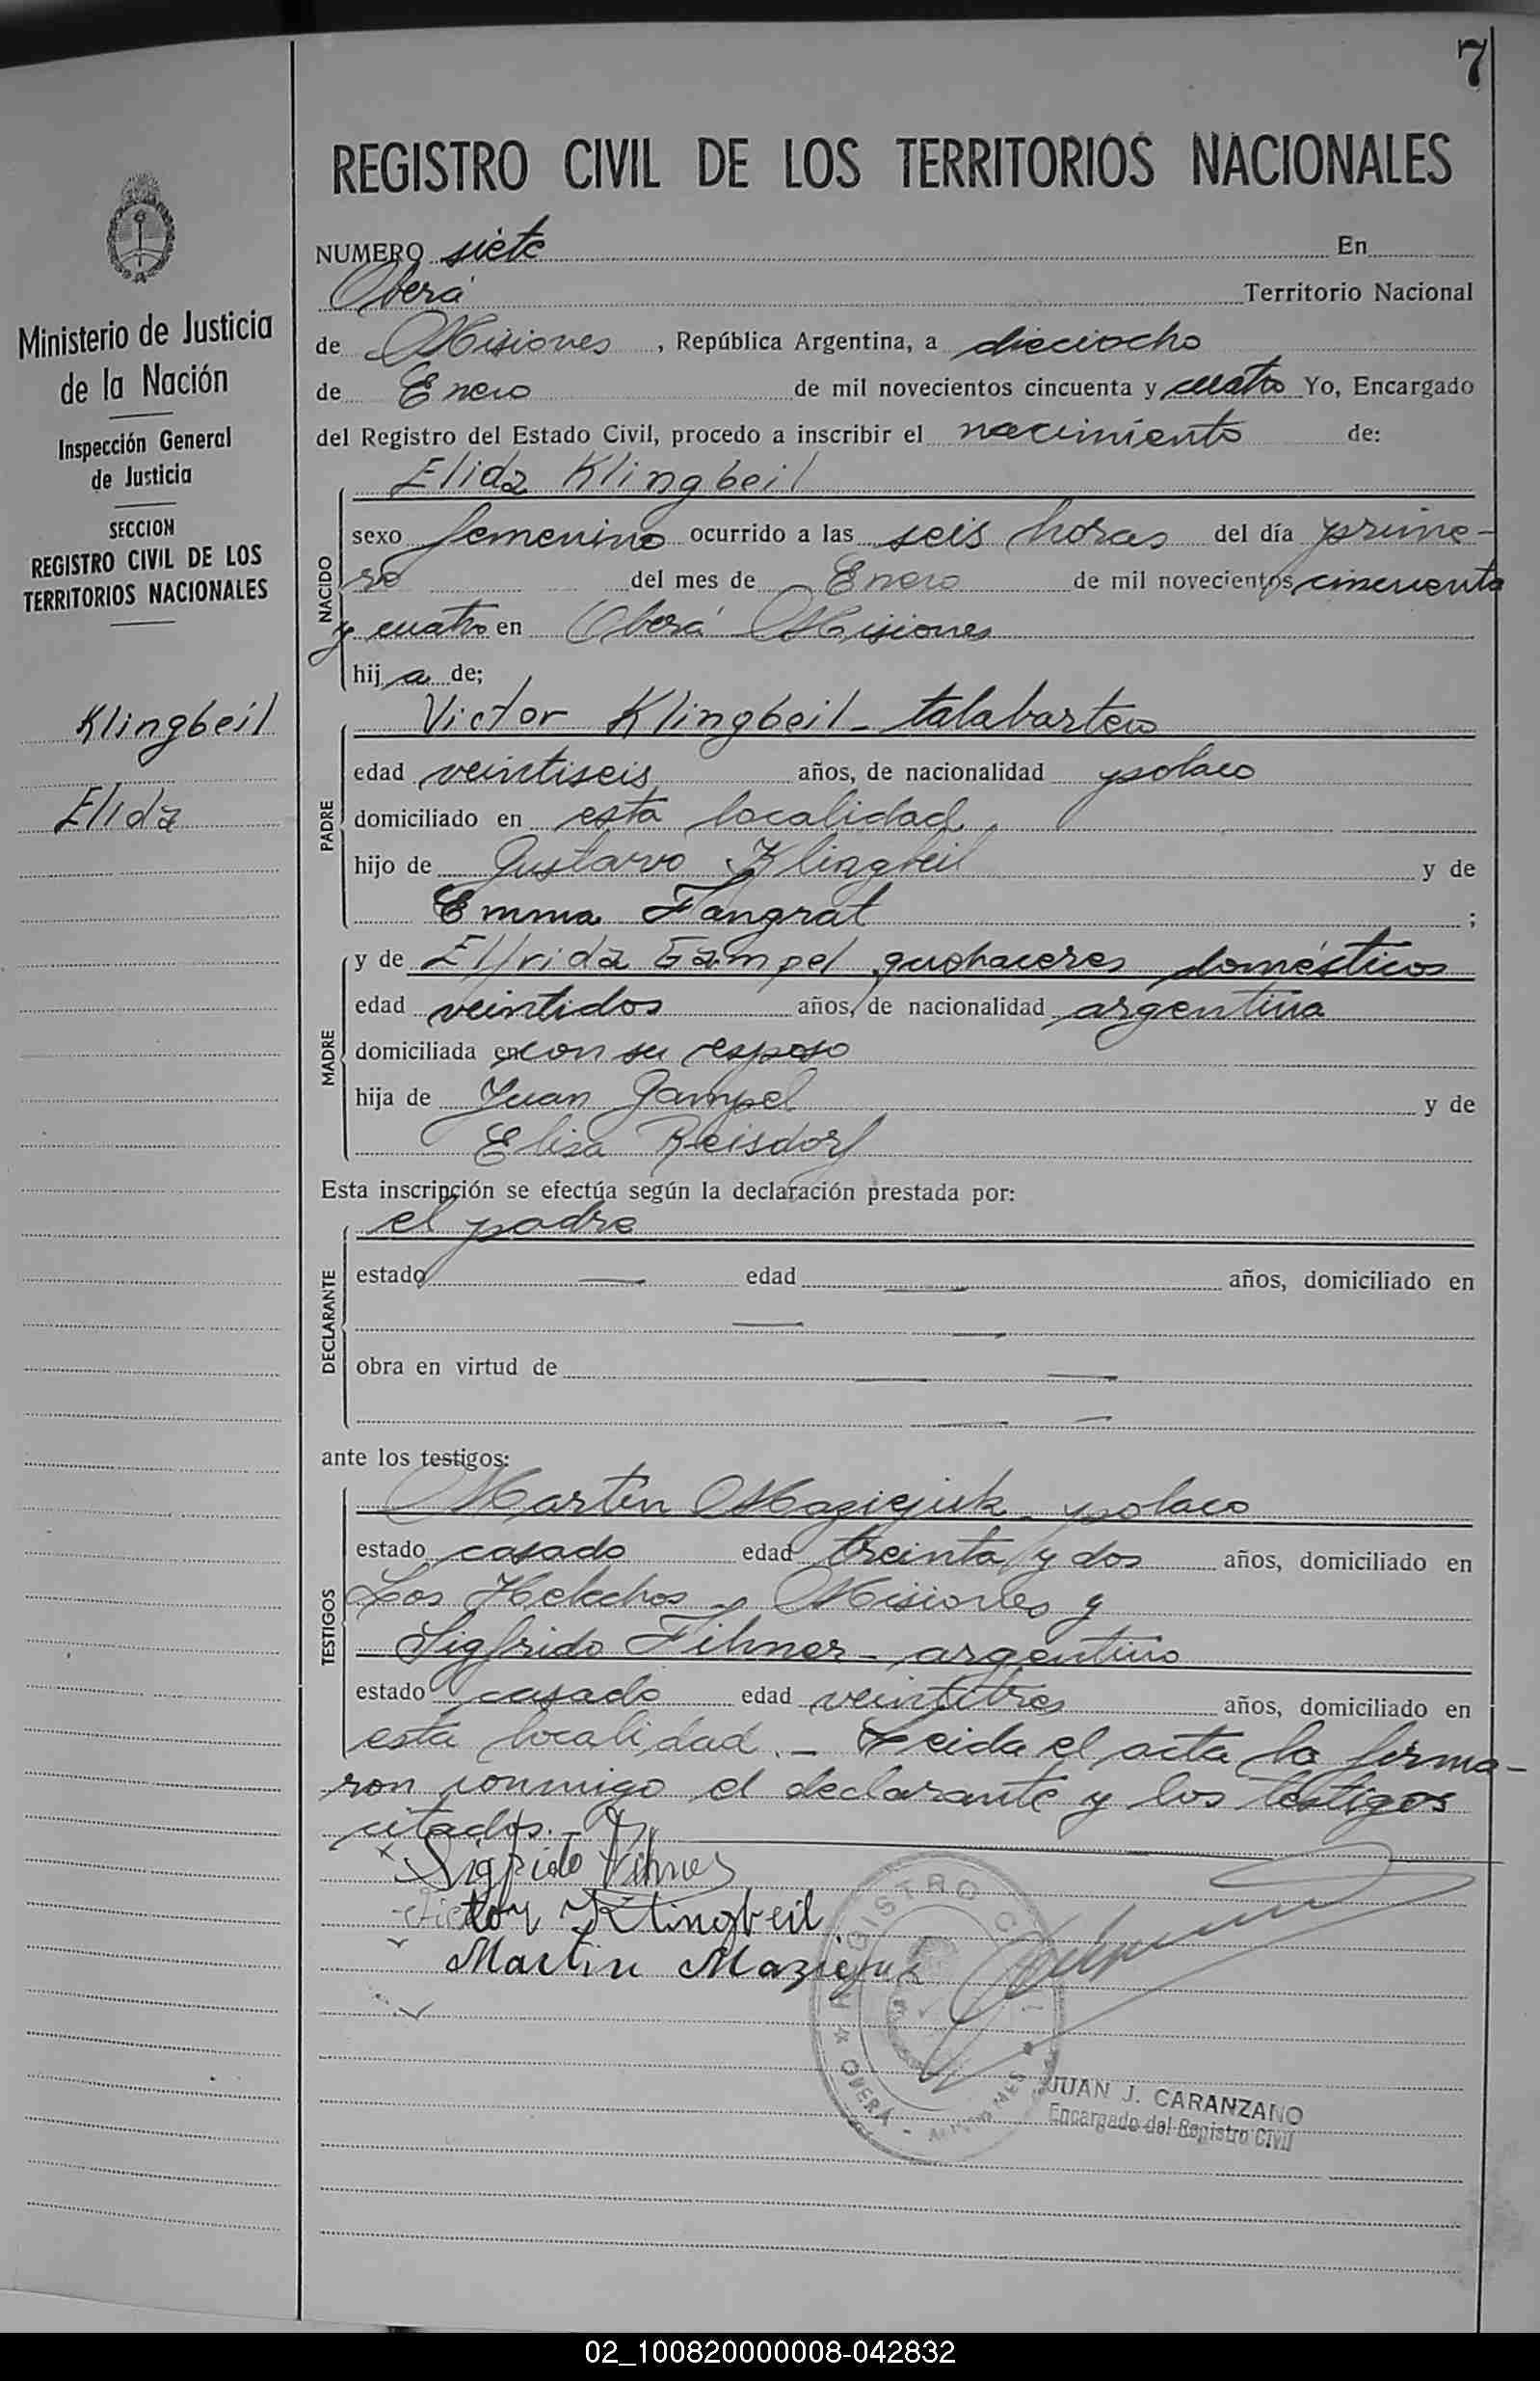 7
REGISTRO CIVIL DE LOS TERRITORIOS NACIONALES
Ministerio de Justicia
de la Nación
Inspección General
de Justicia
SECCION
REGISTRO CIVIL DE LOS
TERRITORIOS NACIONALES
Klingbeil
Elida
NUMERO siete En
Oberá Territorio Nacional
de Misiones, República Argentina, a dieciocho
de Enero de mil novecientos cincuenta y cuatro Yo, Encargado
del Registro del Estado Civil, procedo a inscribir el nacimiento de:
Elida Klingbeil
NACIDO
sexo femenino ocurrido a las seis horas del día prime-
ro del mes de Enero de mil novecientos cincuenta
y cuatro en Oberá Misiones
hij a de;
Victor Klingbeil - talabartero
PADRE
edad veintiseis años, de nacionalidad polaco
domiciliado en esta localidad
hijo de Gustavo Klingbeil y de
Emma Fangrat ;
y de Elfrida Gampel quehaceres domésticos
MADRE
edad veintidos años, de nacionalidad argentina
domiciliada en con su esposo
hija de Juan Gampel y de
Elisa Reisdorf
Esta inscripción se efectúa según la declaración prestada por:
el padre
DECLARANTE
estado — edad — años, domiciliado en
— —
obra en virtud de — —
— —
ante los testigos:
Martin Maziejuk - polaco
TESTIGOS
estado casado edad treinta y dos años, domiciliado en
Los Helechos - Misiones y
Sigfrido Fihner - argentino
estado casado edad veintitres años, domiciliado en
esta localidad. - Leida el acta la firma-
ron conmigo el declarante y los testigos
citados. -
Sigfrido Fihner
Victor Klingbeil
Martin Maziejuk
REGISTRO CIVIL
OBERA - MISIONES
JUAN J. CARANZANO
Encargado del Registro Civil
02_100820000008-042832